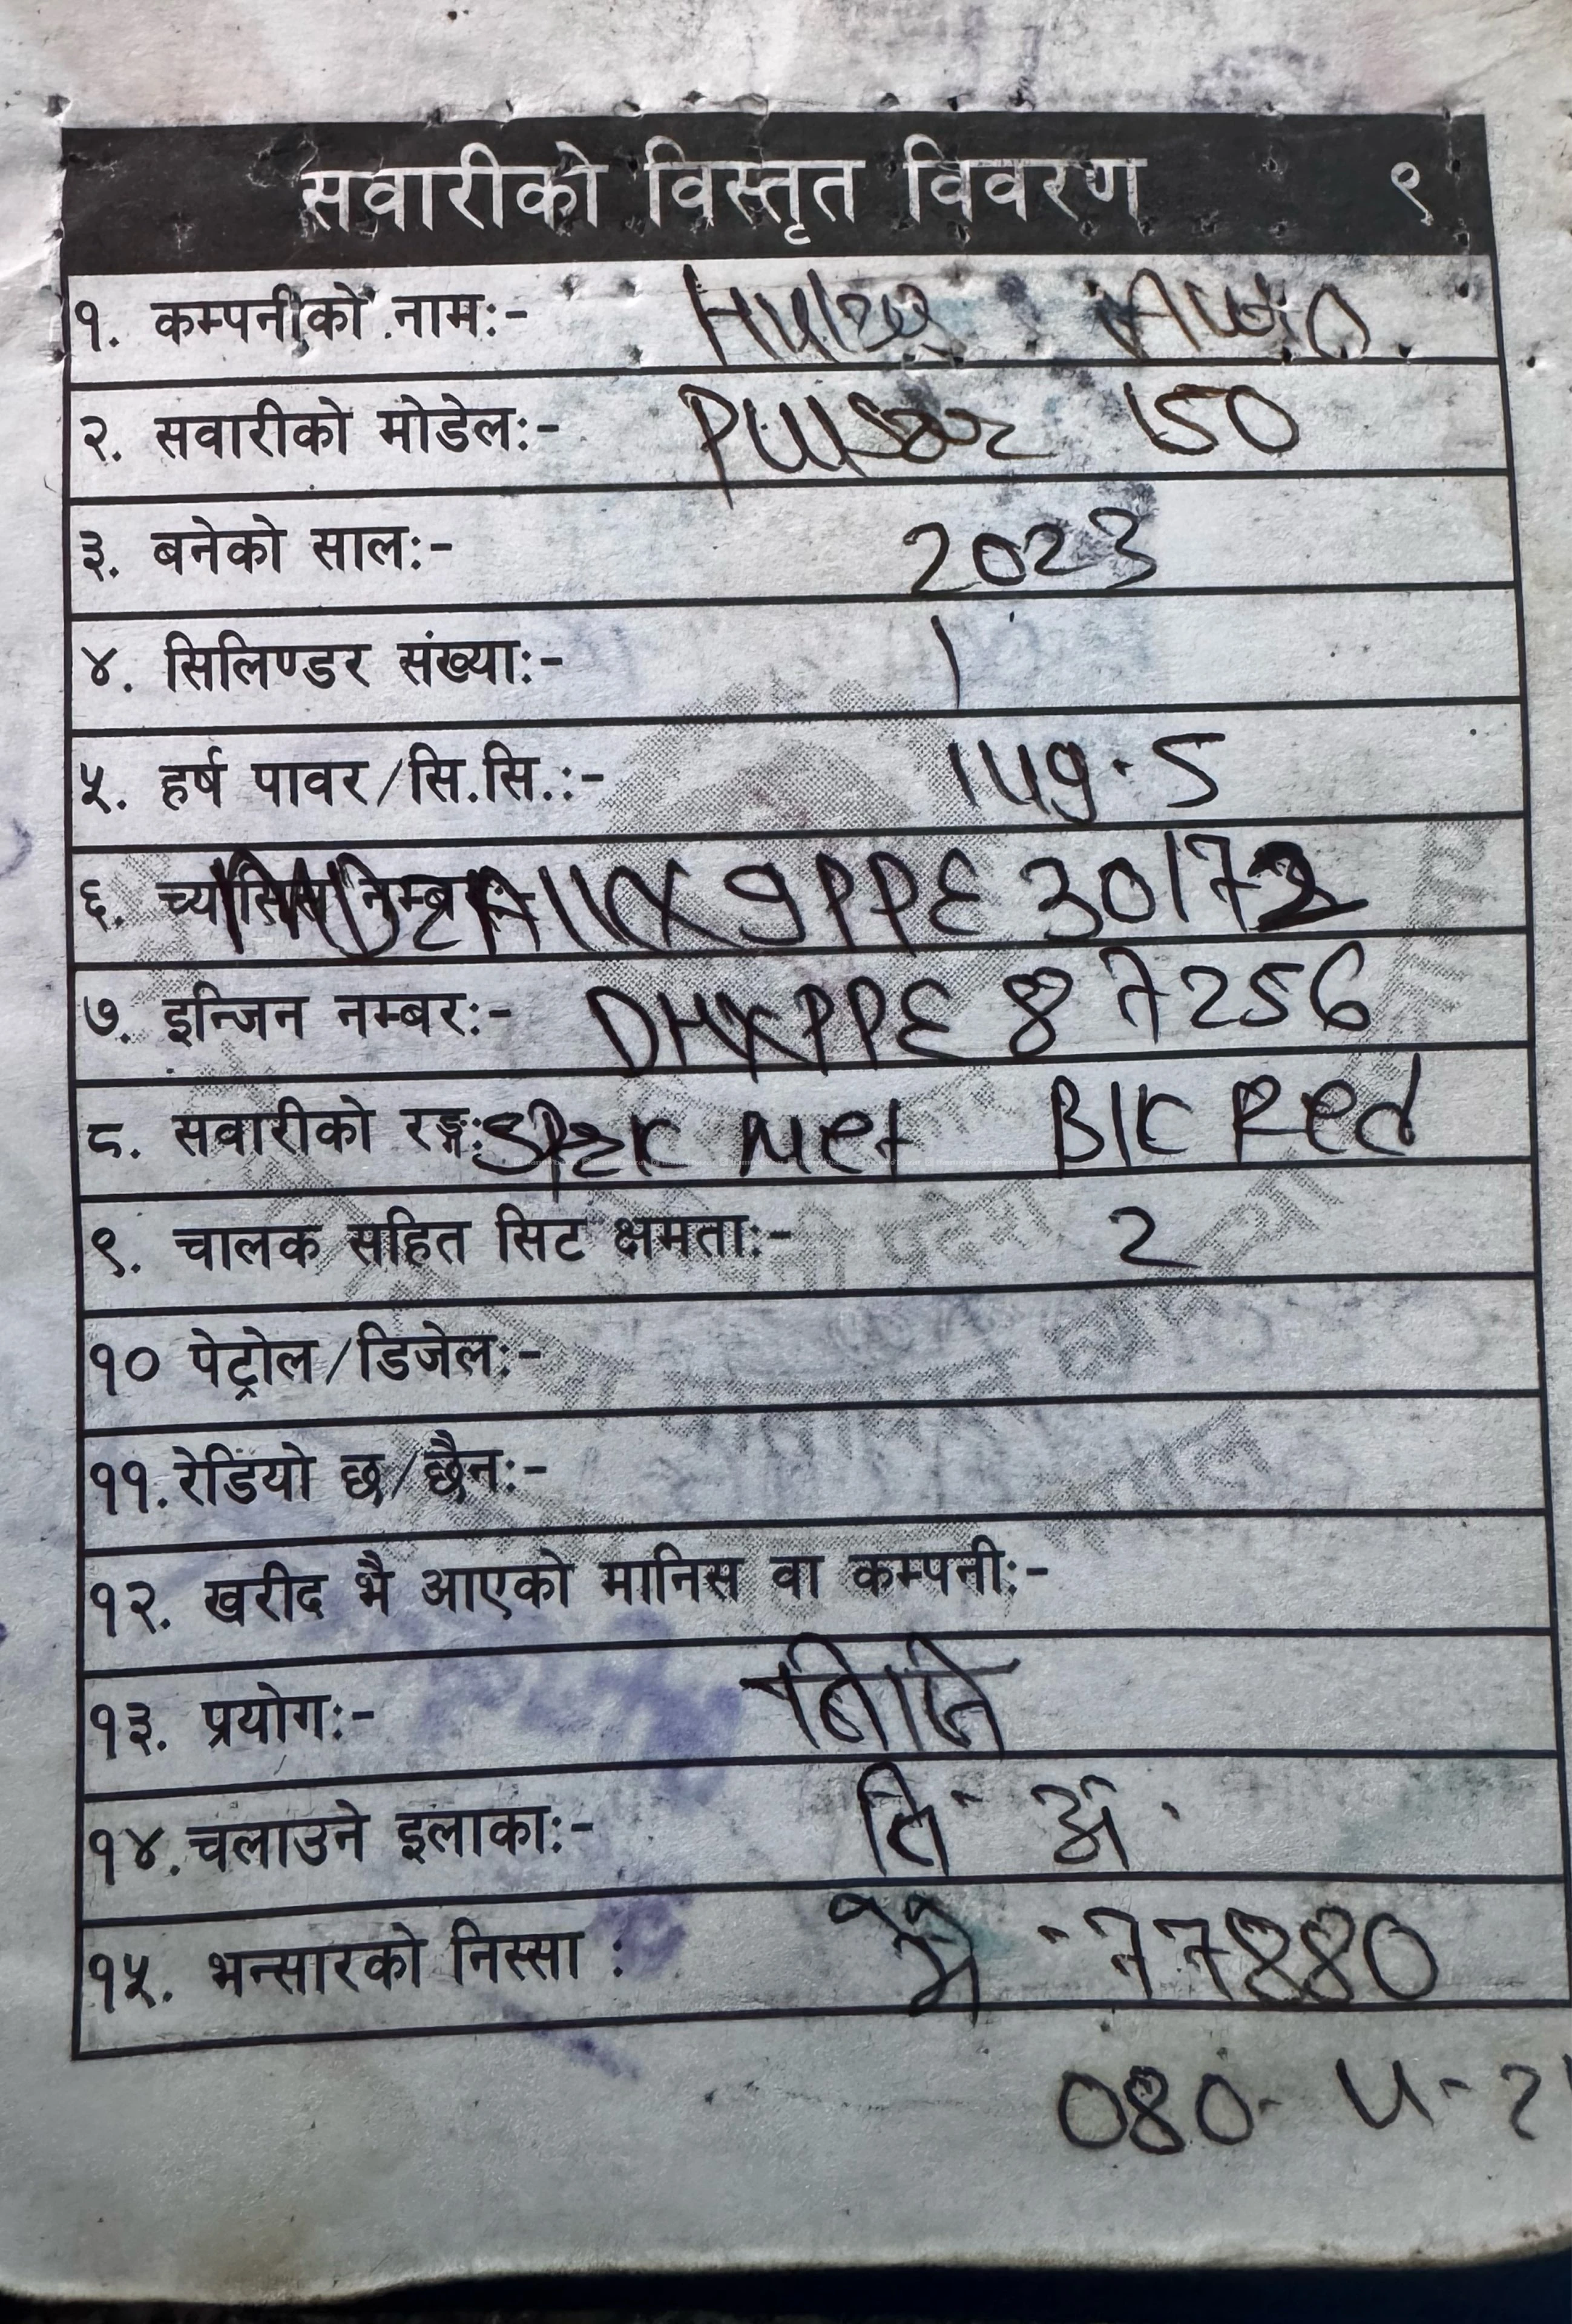 सवारीको विस्तृत विवरण ९
१. कम्पनीको नाम:- Auto
२. सवारीको मोडेल:- Pulsar 150
३. बनेको साल:- 2023
४. सिलिण्डर संख्या:- 1
५. हर्ष पावर/सि.सि.:- 149.5
६. च्यासिस नम्बर:- MD2A11CX9PPE30172
७. इन्जिन नम्बर:- DHXPPE87256
८. सवारीको रङ्ग: Spark Met Blk Red
९. चालक सहित सिट क्षमता:- 2
१० पेट्रोल/डिजेल:-
११. रेडियो छ/छैन:-
१२. खरीद भै आएको मानिस वा कम्पनी:-
१३. प्रयोग:- निजि
१४. चलाउने इलाका:- लि. अं.
१५. भन्सारको निस्सा : 77880
080-4-2